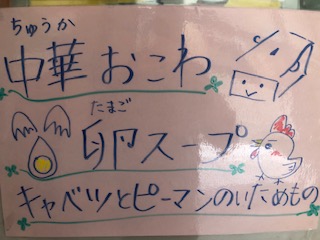 ちゅうか
中華おこわ
たまご
卵スープ
キャベツとピーマンのいためもの